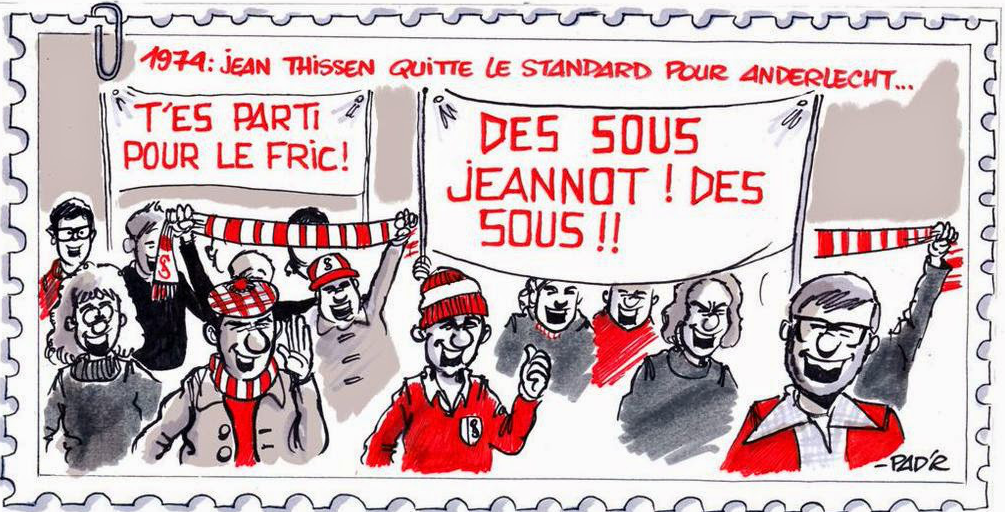 1974: JEAN THISSEN QUITTE LE STANDARD POUR ANDERLECHT...
T'ES PARTI
POUR LE FRIC!
DES SOUS
JEANNOT ! DES
SOUS !!
-PAD'R